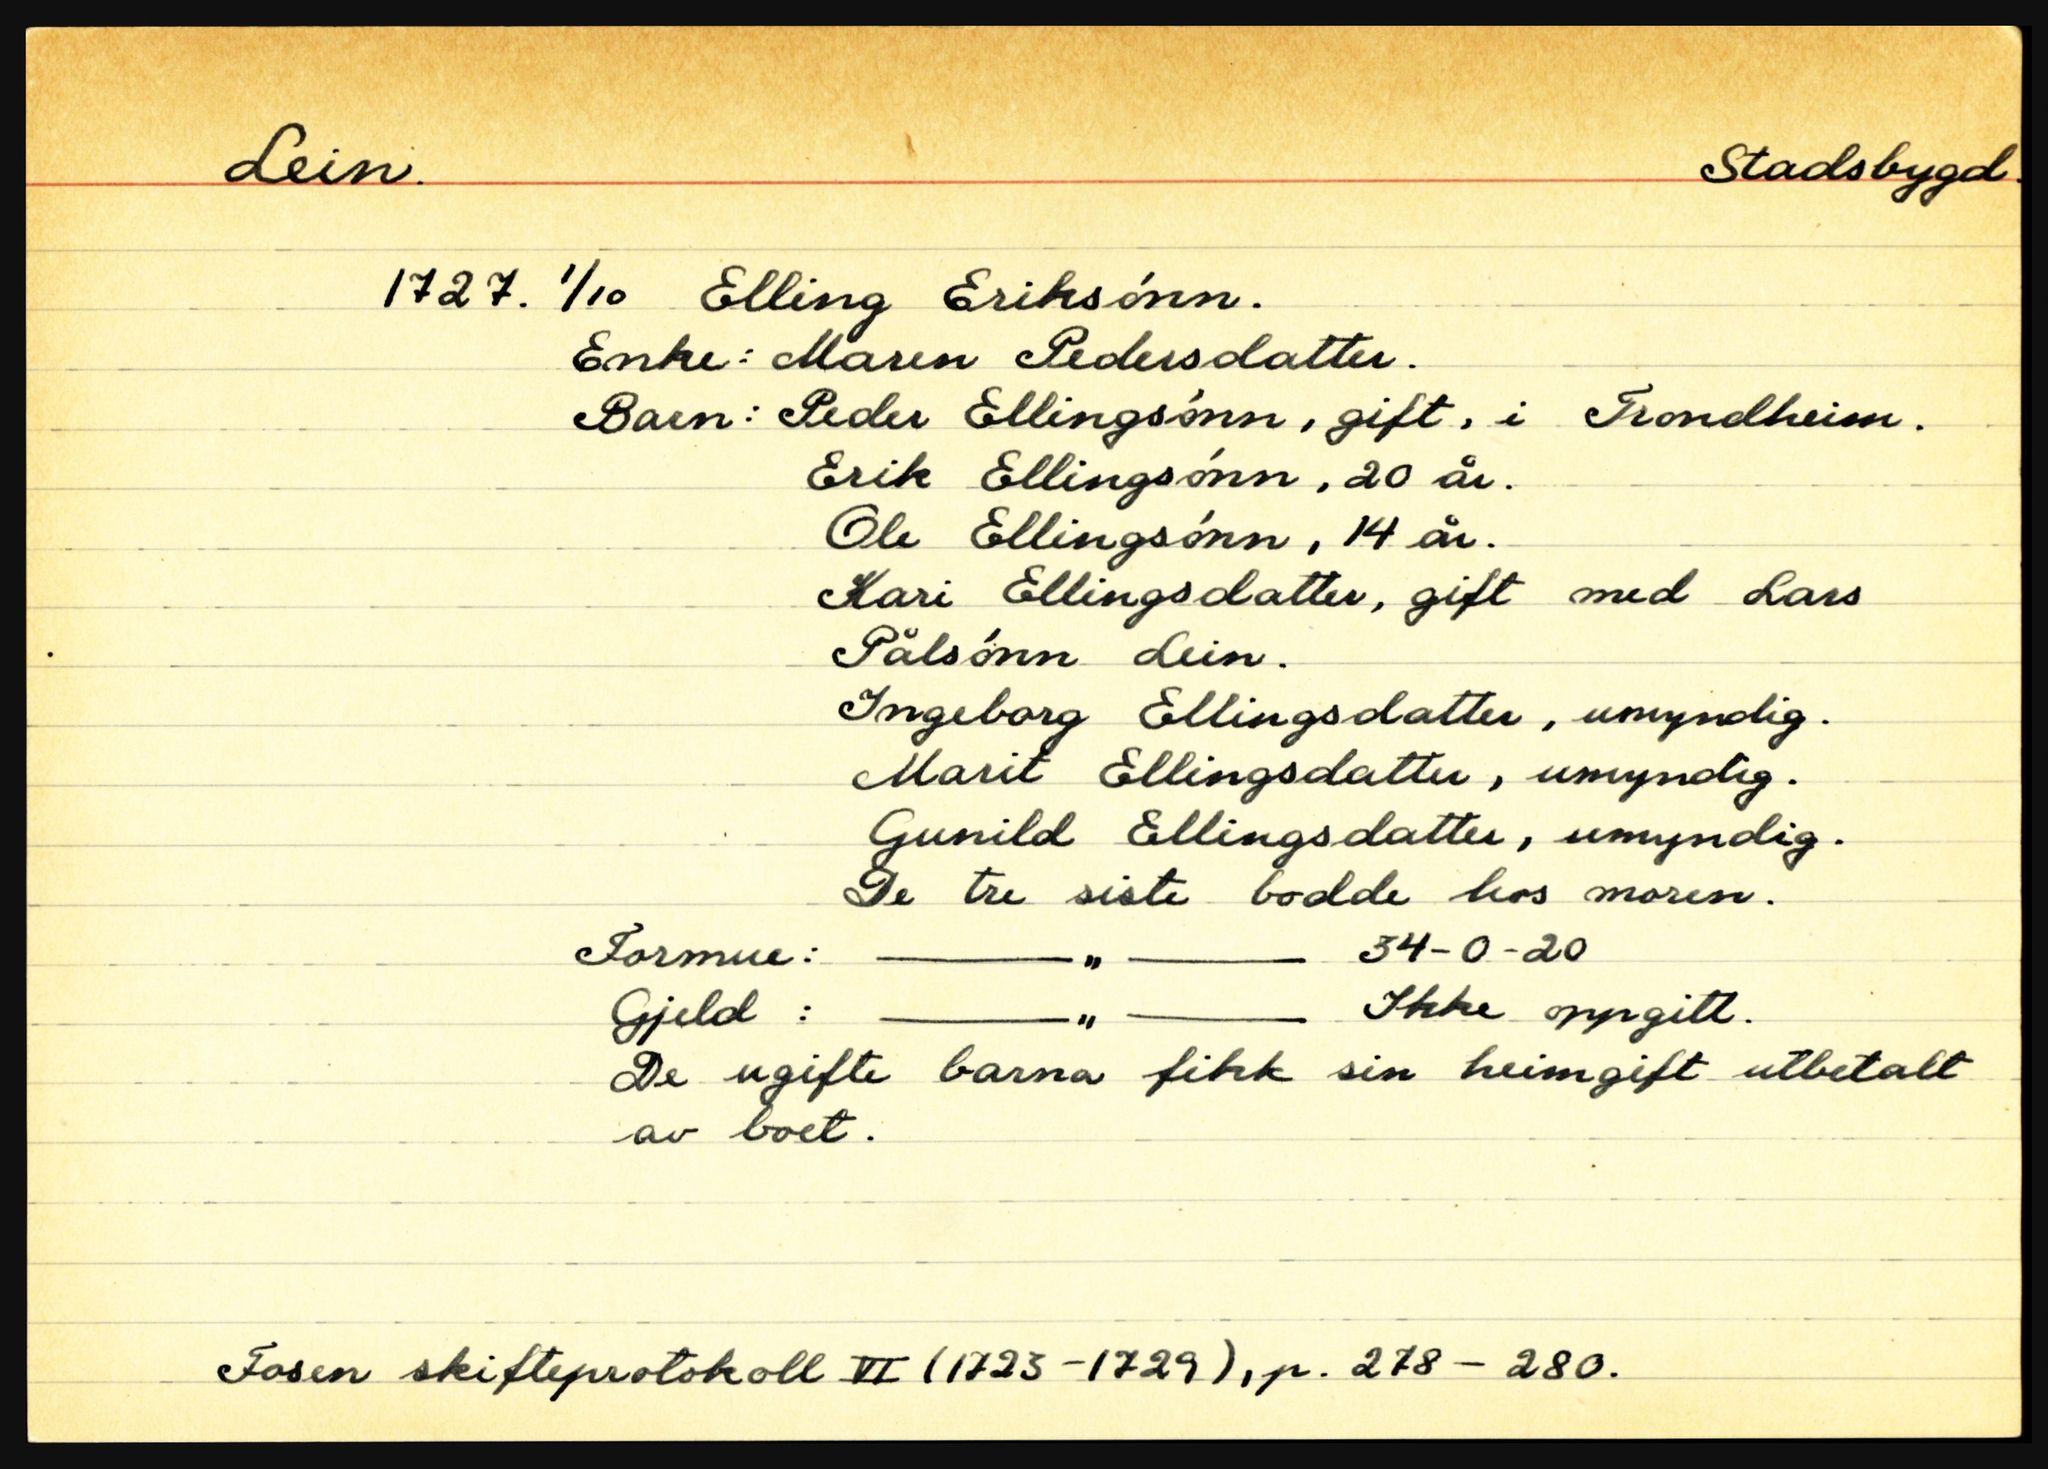 Lein. Stadsbygd.
1727. 1/10 Elling Eriksónn.
Enke: Maren Pedersdatter.
Barn: Peder Ellingsónn, gift, i Trondheim.
Erik Ellingsónn, 20 år.
Ole Ellingsónn, 14 år.
Kari Ellingsdatter, gift med Lars
Pålsónn Lein.
Ingeborg Ellingsdatter, umyndig.
Marit Ellingsdatter, umyndig.
Gunild Ellingsdatter, umyndig.
De tre siste bodde hos moren.
Formue: —— " —— 34-0-20
Gjeld : —— " —— Ikke oppgitt.
De ugifte barna fikk sin heimgift utbetalt
av boet.
Fosen skifteprotokoll VI (1723-1729), p. 278 - 280.